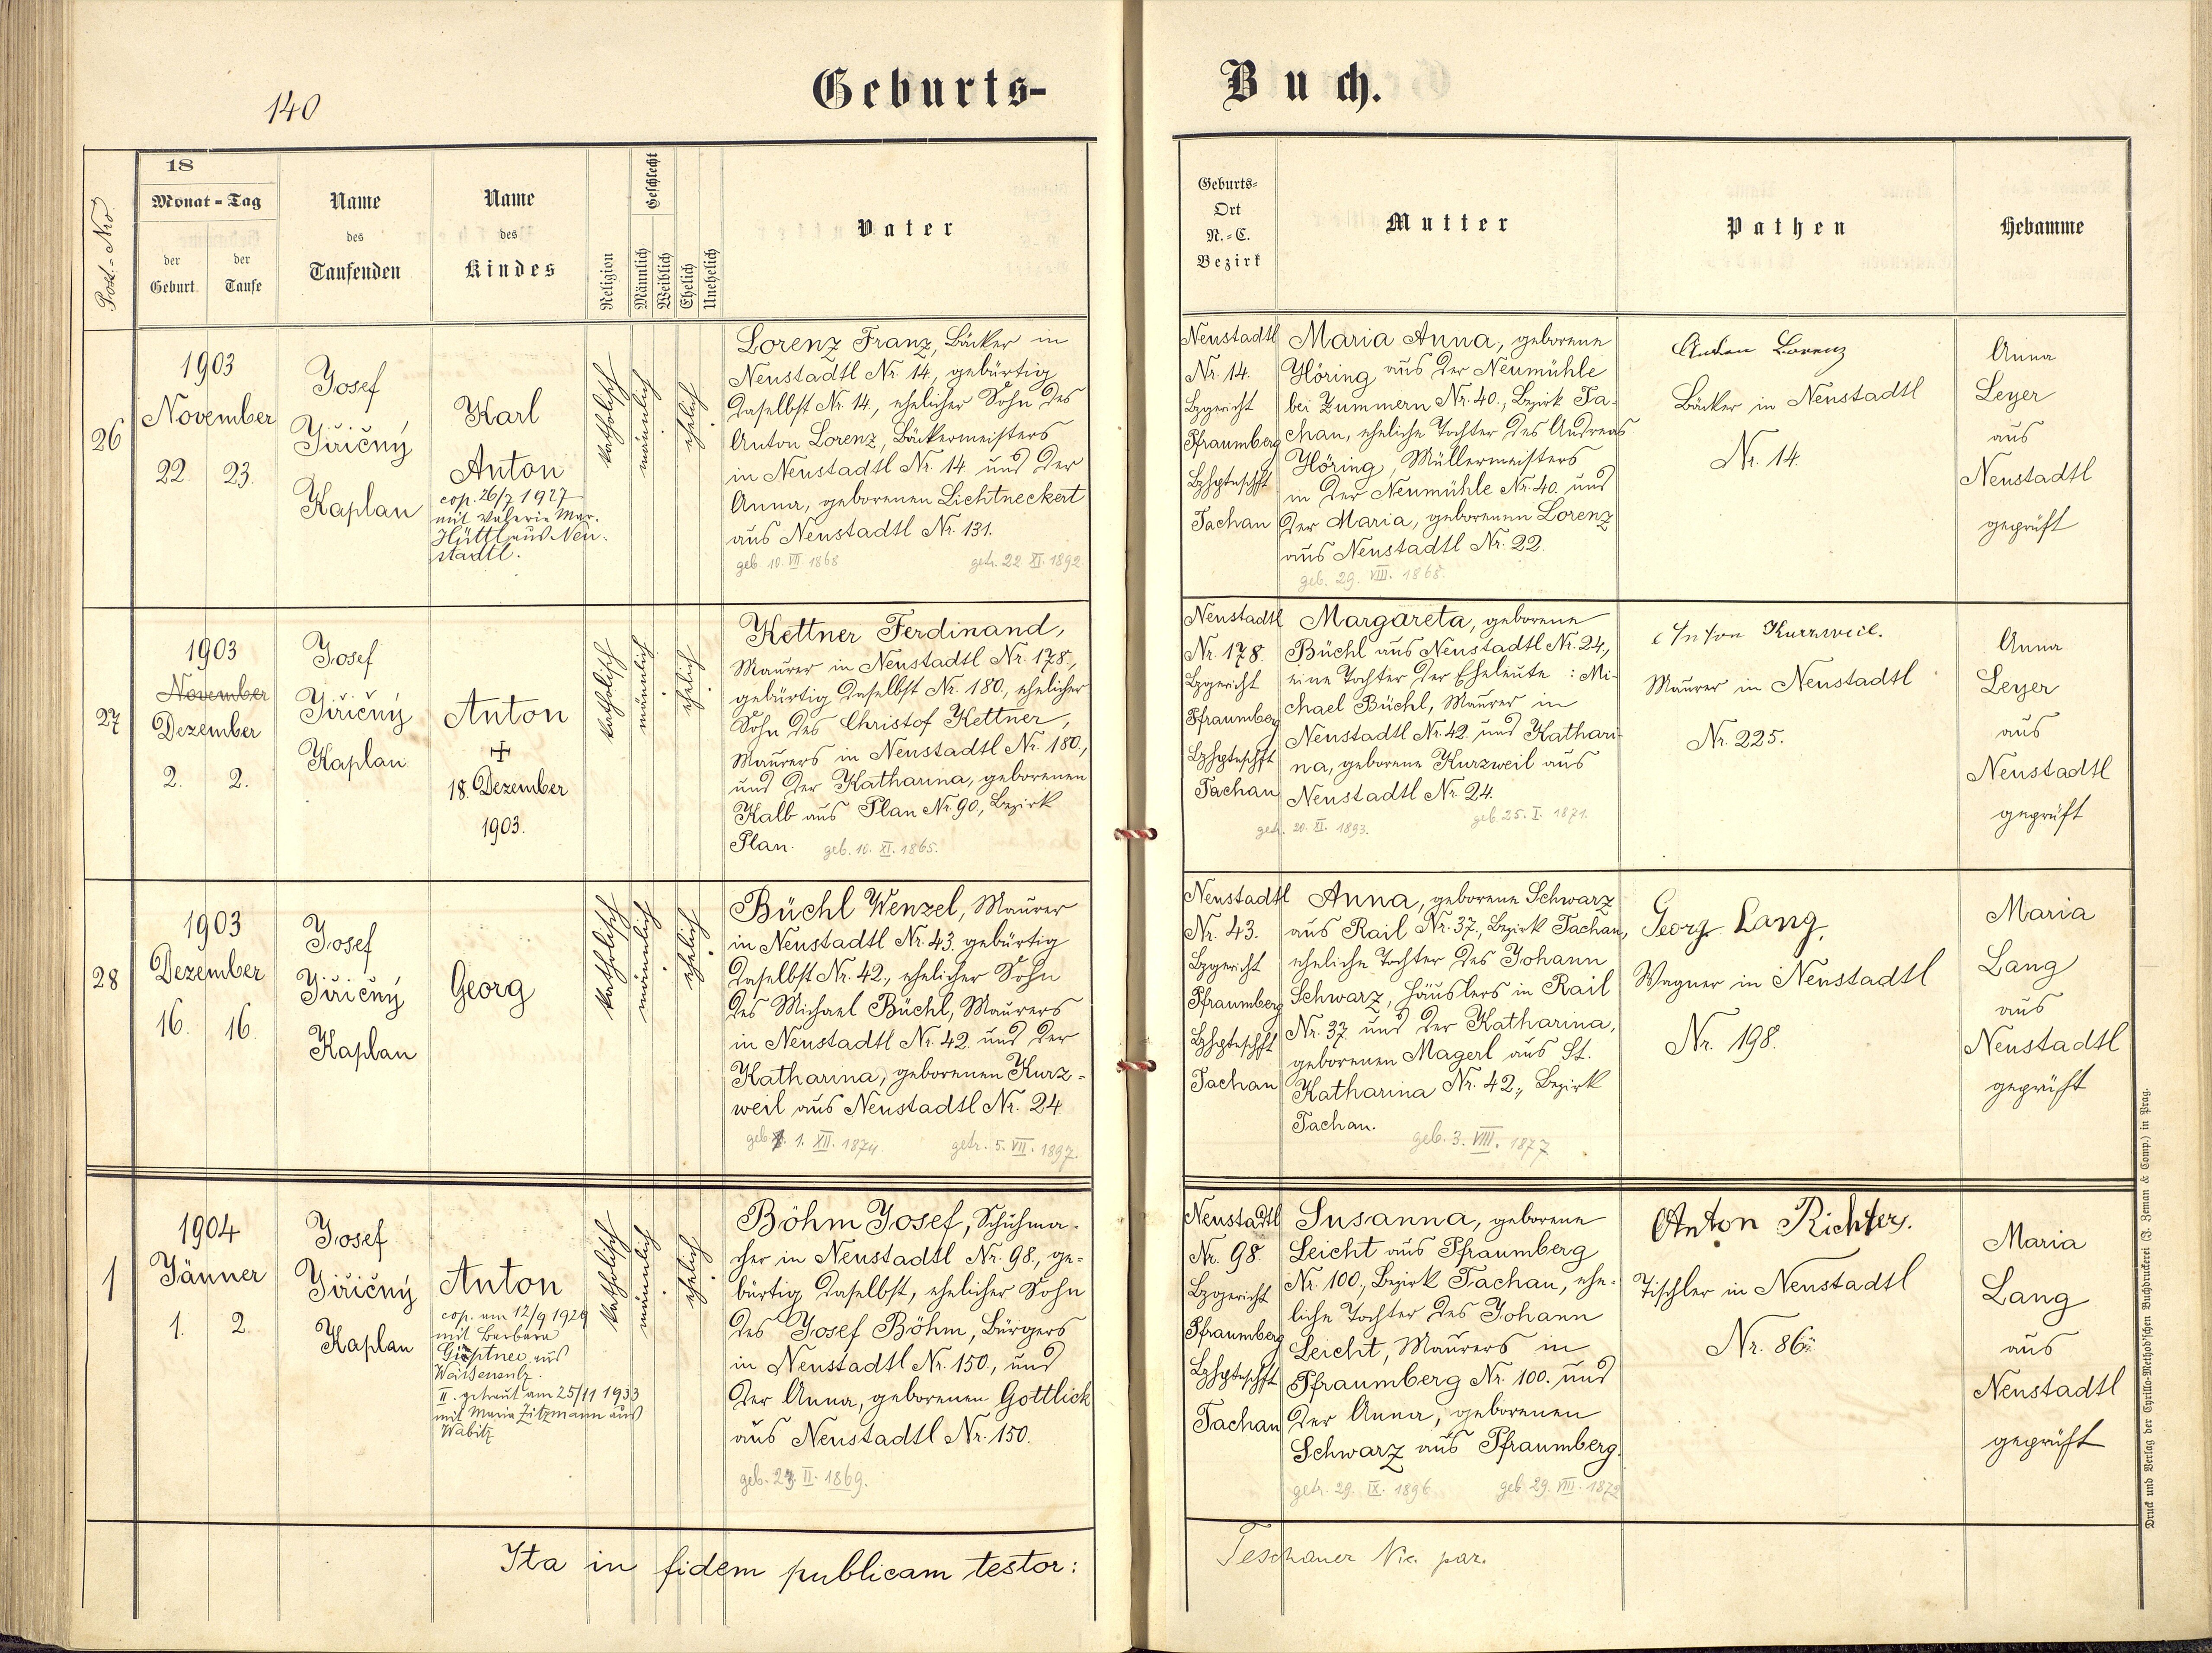 140
Geburts-
Buch.
Post.-Nro
18
Monat-Tag
der Geburt
der Taufe
Name des Taufenden
Name des Kindes
Religion
Geschlecht
Männlich
Weiblich
Ehelich
Unehelich
Vater
Geburts-
Ort
N.-C.
Bezirk
Mutter
Pathen
Hebamme
26
1903
November
22. 23.
Josef
Jiřičný
Kaplan
Karl
Anton
cop. 26/7 1927
mit Valerie Mar.
Hüttl aus Neu-
stadtl.
katholisch
männlich
ehelich
Lorenz Franz, Bäcker in
Neustadtl Nr. 14, gebürtig
daselbst Nr. 14, ehelicher Sohn des
Anton Lorenz, Bäckermeisters
in Neustadtl Nr. 14 und der
Anna, geborenen Lichtneckert
aus Neustadtl Nr. 131.
geb. 10. VII. 1868 getr. 22 XI. 1892
Neustadtl
Nr. 14.
Bzgericht
Pfraumberg
Bzhptmschft
Tachau
Maria Anna, geborene
Höring aus der Neumühle
bei Zummern Nr. 40., Bezirk Ta-
chau, eheliche Tochter des Andreas
Höring, Müllermeisters
in der Neumühle Nr. 40. und
der Maria, geborenen Lorenz
aus Neustadtl Nr. 22.
geb. 29. VIII. 1868.
Anton Lorenz
Bäcker in Neustadtl
Nr. 14.
Anna
Leyer
aus
Neustadtl
geprüft
27
1903
November
Dezember
2. 2.
Josef
Jiřičný
Kaplan
Anton
+
18. Dezember
1903.
katholisch
männlich
ehelich
Kettner Ferdinand,
Maurer in Neustadtl Nr. 178.,
gebürtig daselbst Nr. 180., ehelicher
Sohn des Christof Kettner,
Maurers in Neustadtl Nr. 180,
und der Katharina, geborenen
Kalb aus Plan Nr. 90., Bezirk
Plan. geb. 10. XI. 1865.
Neustadtl
Nr. 178.
Bzgericht
Pfraumberg
Bzhptmschft
Tachau
Margareta, geborene
Büchl aus Neustadtl Nr. 24,
eine Tochter der Eheleute: Mi-
chael Büchl, Maurer in
Neustadtl Nr. 42. und Kathari-
na, geborene Kurzweil aus
Neustadtl Nr. 24.
geb. 25. I. 1871.
getr. 20. XI. 1893.
Anton Kurzweil.
Maurer in Neustadtl
Nr. 225.
Anna
Leyer
aus
Neustadtl
geprüft
28
1903
Dezember
16. 16.
Josef
Jiřičný
Kaplan
Georg
katholisch
männlich
ehelich
Büchl Wenzel, Maurer
in Neustadtl Nr. 43. gebürtig
daselbst Nr. 42., ehelicher Sohn
des Michael Büchl, Maurers
in Neustadtl Nr. 42. und der
Katharina, geborenen Kurz-
weil aus Neustadtl Nr. 24
geb. 1. XII. 1874 getr. 5. VII. 1897.
Neustadtl
Nr. 43.
Bzgericht
Pfraumberg
Bzhptmschft
Tachau
Anna, geborene Schwarz
aus Rail Nr. 37., Bezirk Tachau,
eheliche Tochter des Johann
Schwarz, Häuslers in Rail
Nr. 37. und der Katharina,
geborenen Magerl aus St.
Katharina Nr. 42., Bezirk
Tachau.
geb. 3. VIII. 1877
Georg Lang,
Wagner in Neustadtl
Nr. 198.
Maria
Lang
aus
Neustadtl
geprüft
1
1904
Jänner
1. 2.
Josef
Jiřičný
Kaplan
Anton
cop. am 12/9 1929
mit Barbara
aus
II. getraut am 25/11 1933
mit Maria Zitzmann aus
Wabitz
katholisch
männlich
ehelich
Böhm Josef, Schuhma-
cher in Neustadtl Nr. 98., ge-
bürtig daselbst, ehelicher Sohn
des Josef Böhm, Bürgers
in Neustadtl Nr. 150., und
der Anna, geborenen Gottlick
aus Neustadtl Nr. 150.
geb. II. 1869.
Neustadtl
Nr. 98.
Bzgericht
Pfraumberg
Bzhptmschft
Tachau
Susanna, geborene
Leicht aus Pfraumberg
Nr. 100., Bezirk Tachau, ehe-
liche Tochter des Johann
Leicht, Maurers in
Pfraumberg Nr. 100. und
der Anna, geborenen
Schwarz aus Pfraumberg.
getr. 29. IX. 1896 geb. 29. VIII. 1872
Anton Richter.
Tischler in Neustadtl
Nr. 86.
Maria
Lang
aus
Neustadtl
geprüft
Ita in fidem publicam testor:
Teschauer par.
Druck und Verlag der Cyrillo-Method'schen Buchdruckerei (J. Zeman & Comp.) in Prag.